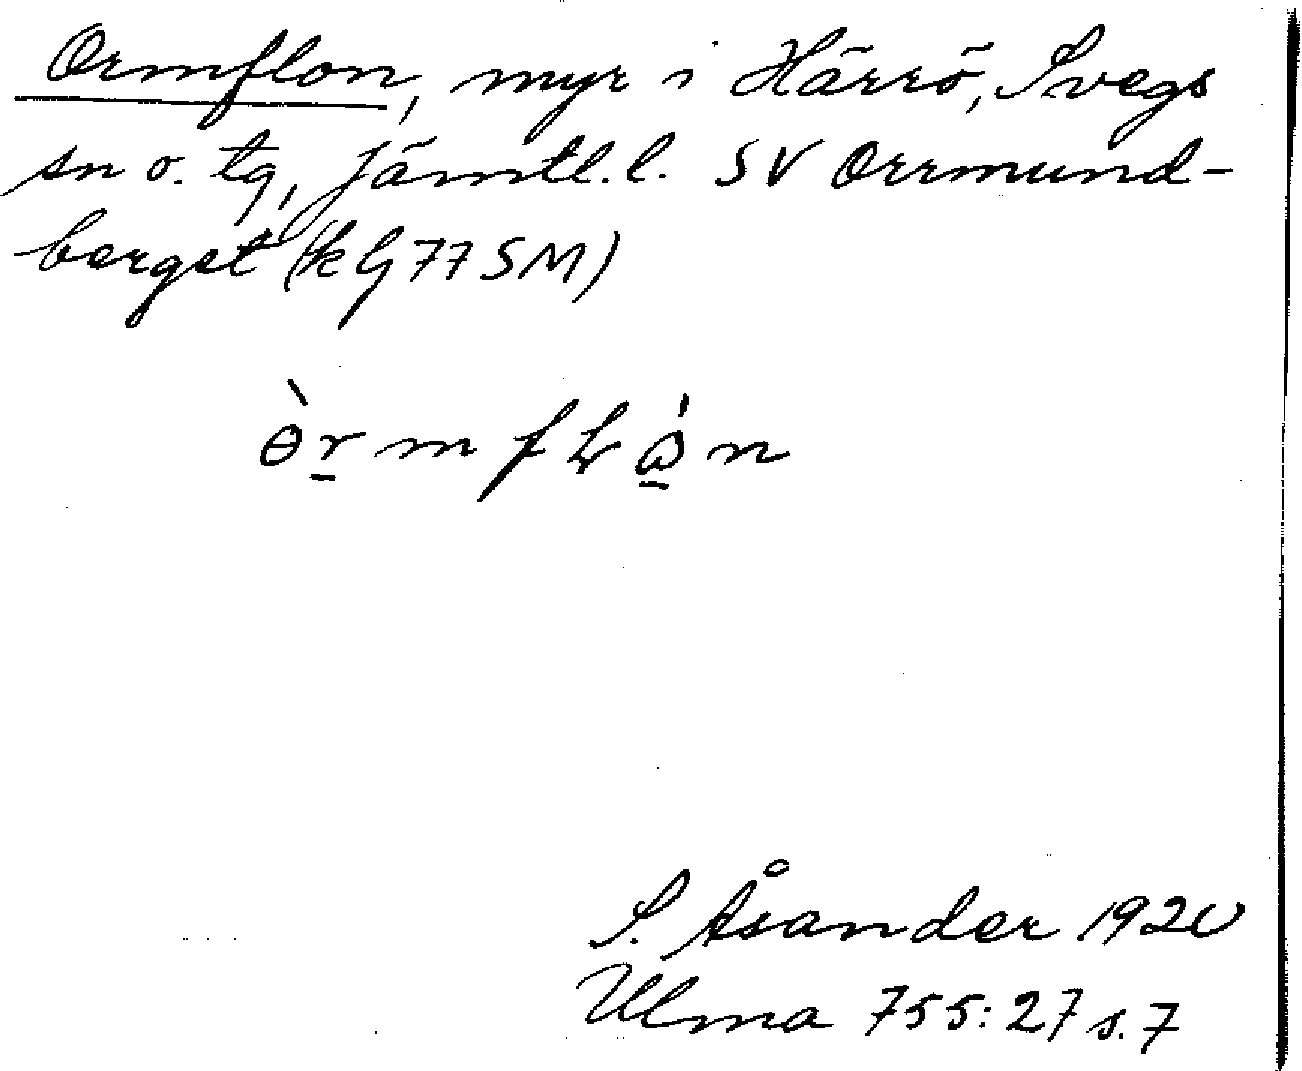 Ormflon, myr i Härrö, Svegs
sn o. tg, Jämtl.l. SV Orrmund-
berget (kG77SM)
S. Åsander 1920
Ulma 755:27 s.7